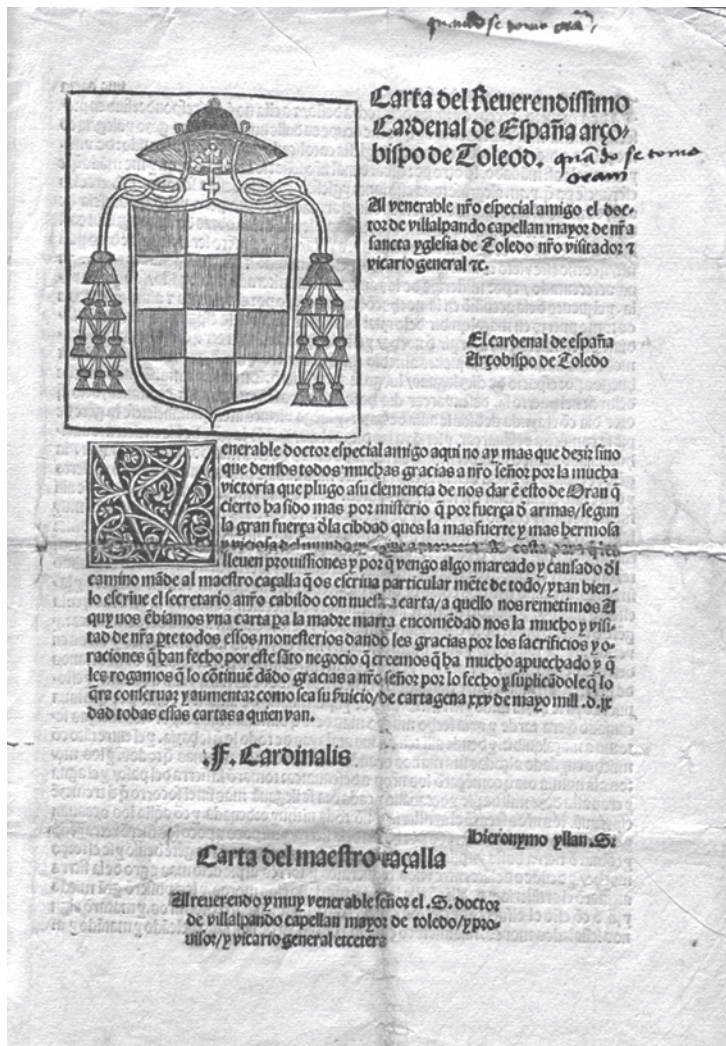 quando se tomo oran
Carta del Reuerendissimo
Cardenal de España arço-
bispo de Toleod.
quãdo se tomo
oram
Al venerable nr̃o especial amigo el doc-
tor de villalpando capellan mayor de nr̃a
sancta yglesia de Toledo nr̃o visitador ⁊
vicario general ⁊c.
El cardenal de españa
Arçobispo de Toledo
Venerable doctor especial amigo aqui no ay mas que desir sino
que demos todos muchas gracias a nr̃o señor por la mucha
victoria que plugo asu clemencia de nos dar ẽ esto de Oran q̃
cierto ha sido mas por misterio q̃ por fuerça d̃ armas/segun
la gran fuerça d̃la cibdad ques la mas fuerte y mas hermosa
y viciosa del mundo
lleuen prouissiones y por q̃ vengo algo mareado y cansado d̃l
camino mãde al maestro caçalla q̃ os escriua particular mẽte de todo/y tan bien
lo escriue el secretario anr̃o cabildo con nuestra carta/a quello nos remetimos Al
quy uos ẽbiamos vna carta p̃a la madre marta encomẽdad nos la mucho y visi-
tad de nr̃a p̃te todos essos monesterios dando les gracias por los sacrificios y o-
raciones q̃ han fecho por este sãto negocio q̃ creemos q̃ ha mucho apuechado y q̃
les rogamos q̃ lo cõtinuẽ dãdo gracias a nr̃o señor por lo fecho y suplicãdole q̃ lo
q̃ra conseruar y aumentar como sea su s̃uicio/de cartagena xxv de mayo mill .d.ix
dad todas essas cartas a quien van.
.F. Cardinalis
Hieronymo yllan .S.
Carta del maestro caçalla
Al reuerendo y muy venerable señor el .S. doctor
de villalpando capellan mayor de toledo/y pro-
uisor/y vicario general etcetera